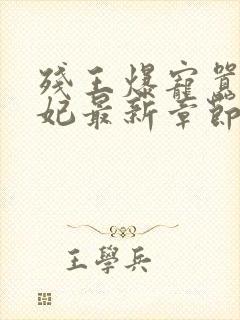 残王爆寵囂
妃最新章節
王學兵